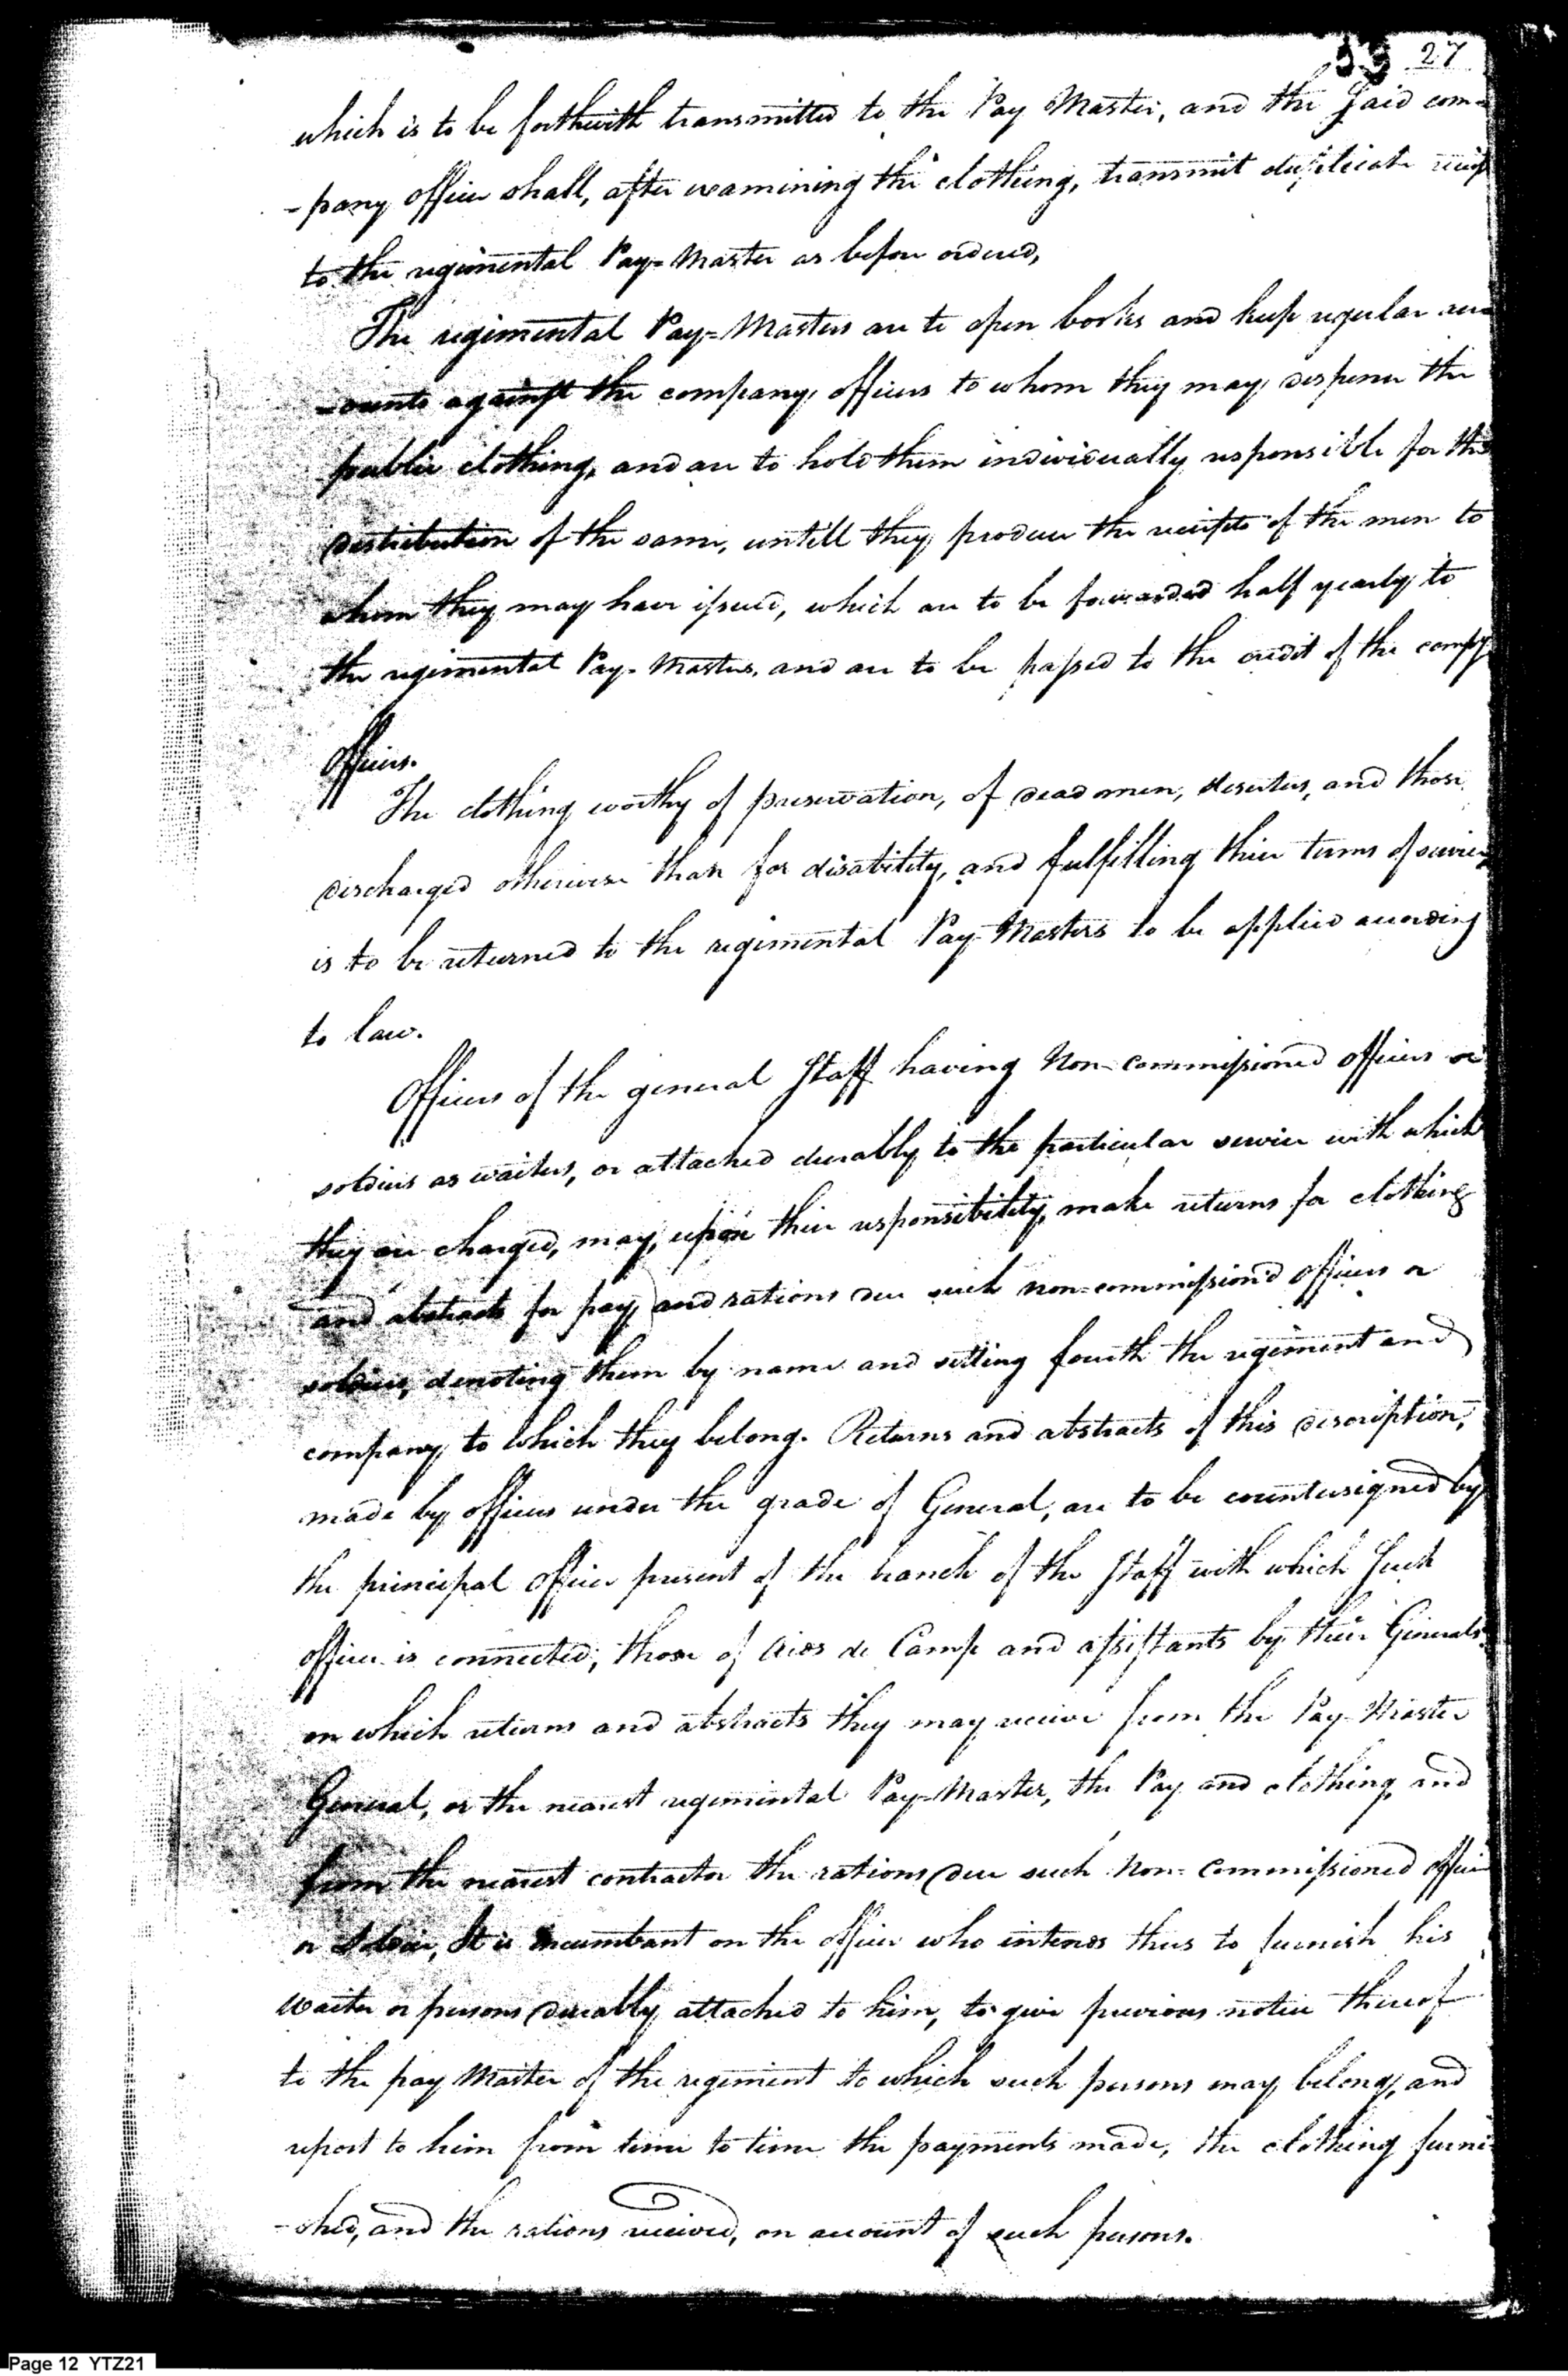 27
which is to be forthwith transmitted to the Pay Master, and the said com=
-pany officer shall, after examining the clothing, transmit duplicate
to the regimental Pay=Master as before ordered,
The regimental Pay=Masters are to open books and keep regular acc=
-ounts against the company officers to whom they may dispence the
public clothing, and are to hold them individually responsible for the
distribution of the same, untill they produce the receipts of the men to
whom they may have issued, which are to be forwarded half yearly to
the regimental Pay-Masters, and are to be passed to the credit of the compy
Officers.
The clothing worthy of preservation, of dead men, deserters, and those
discharged otherwise than for disability, and fulfilling thier terms of service
is to be returned to the regimental Pay-Masters to be applied according
to law.
Officers of the general Staff having Non-commissioned officers or
soldiers as waiters, or attached durably to the particular service with which
they are charged, may, upon thier responsibility, make returns for clothing
and abstracts for pay and rations due such non=commission'd officers or
soldiers, denoting them by name and setting fourth the regiment and
company to which they belong. Returns and abstracts of this description,
made by officers under the grade of General, are to be countersigned by
the principal officer present of the branch of the Staff with which such
officer is connected; those of Aids de Camp and assistants by their Generals
on which returns and abstracts they may receive from the Pay-Master
General, or the nearest regimental Pay-Master, the Pay and clothing, and
from the nearest contractor the rations due such Non-commissioned officer
or Soldier, It is incumbant on the officer who intends thus to furnish his
waiter or persons durably attached to him, to give previous notice thereof
to the pay Master of the regiment to which such persons may belong, and
report to him from time to time the payments made, the clothing furni
-shed, and the rations received, on account of such persons.
Page 12 YTZ21